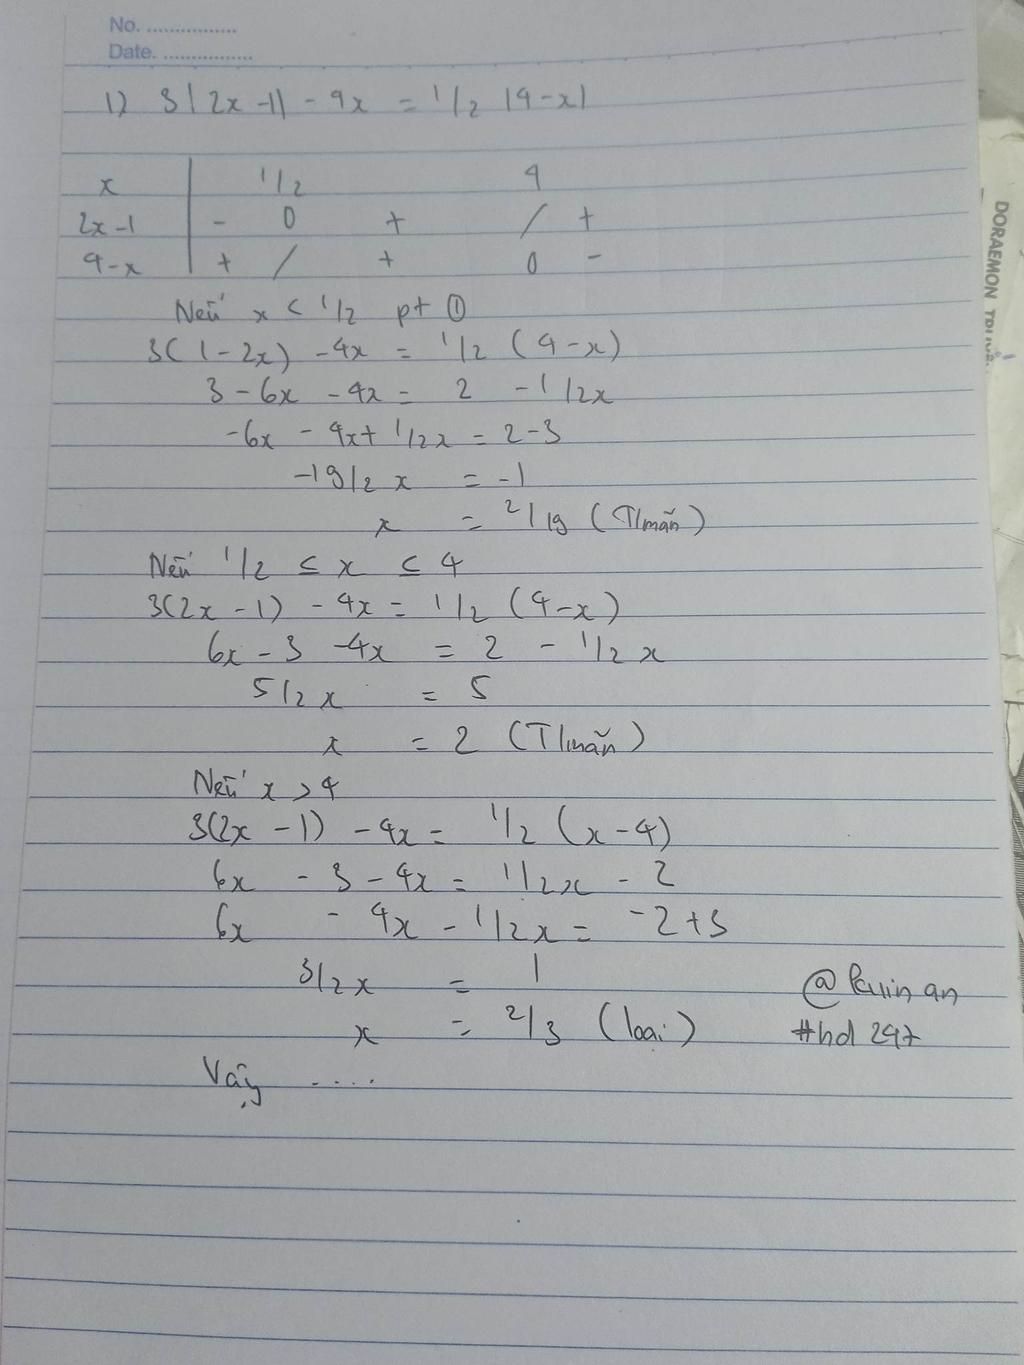 No. ..................
Date. ..................
1) 3|2x-1| - 4x = 1/2 |4-x|
x 1/2 4
2x-1 - 0 + / +
4-x + / + 0 -
Nếu x < 1/2 pt ①
3(1-2x) - 4x = 1/2 (4-x)
3 - 6x - 4x = 2 - 1/2x
-6x - 4x + 1/2x = 2-3
-19/2 x = -1
x = 2/19 (T/mãn)
Nếu 1/2 ≤ x ≤ 4
3(2x-1) - 4x = 1/2 (4-x)
6x - 3 - 4x = 2 - 1/2 x
5/2 x = 5
x = 2 (T/mãn)
Nếu x > 4
3(2x-1) - 4x = 1/2 (x-4)
6x - 3 - 4x = 1/2x - 2
6x - 4x - 1/2x = -2+3
3/2x = 1
x = 2/3 (loại)
Vậy ....
#hd 247
DORAEMON